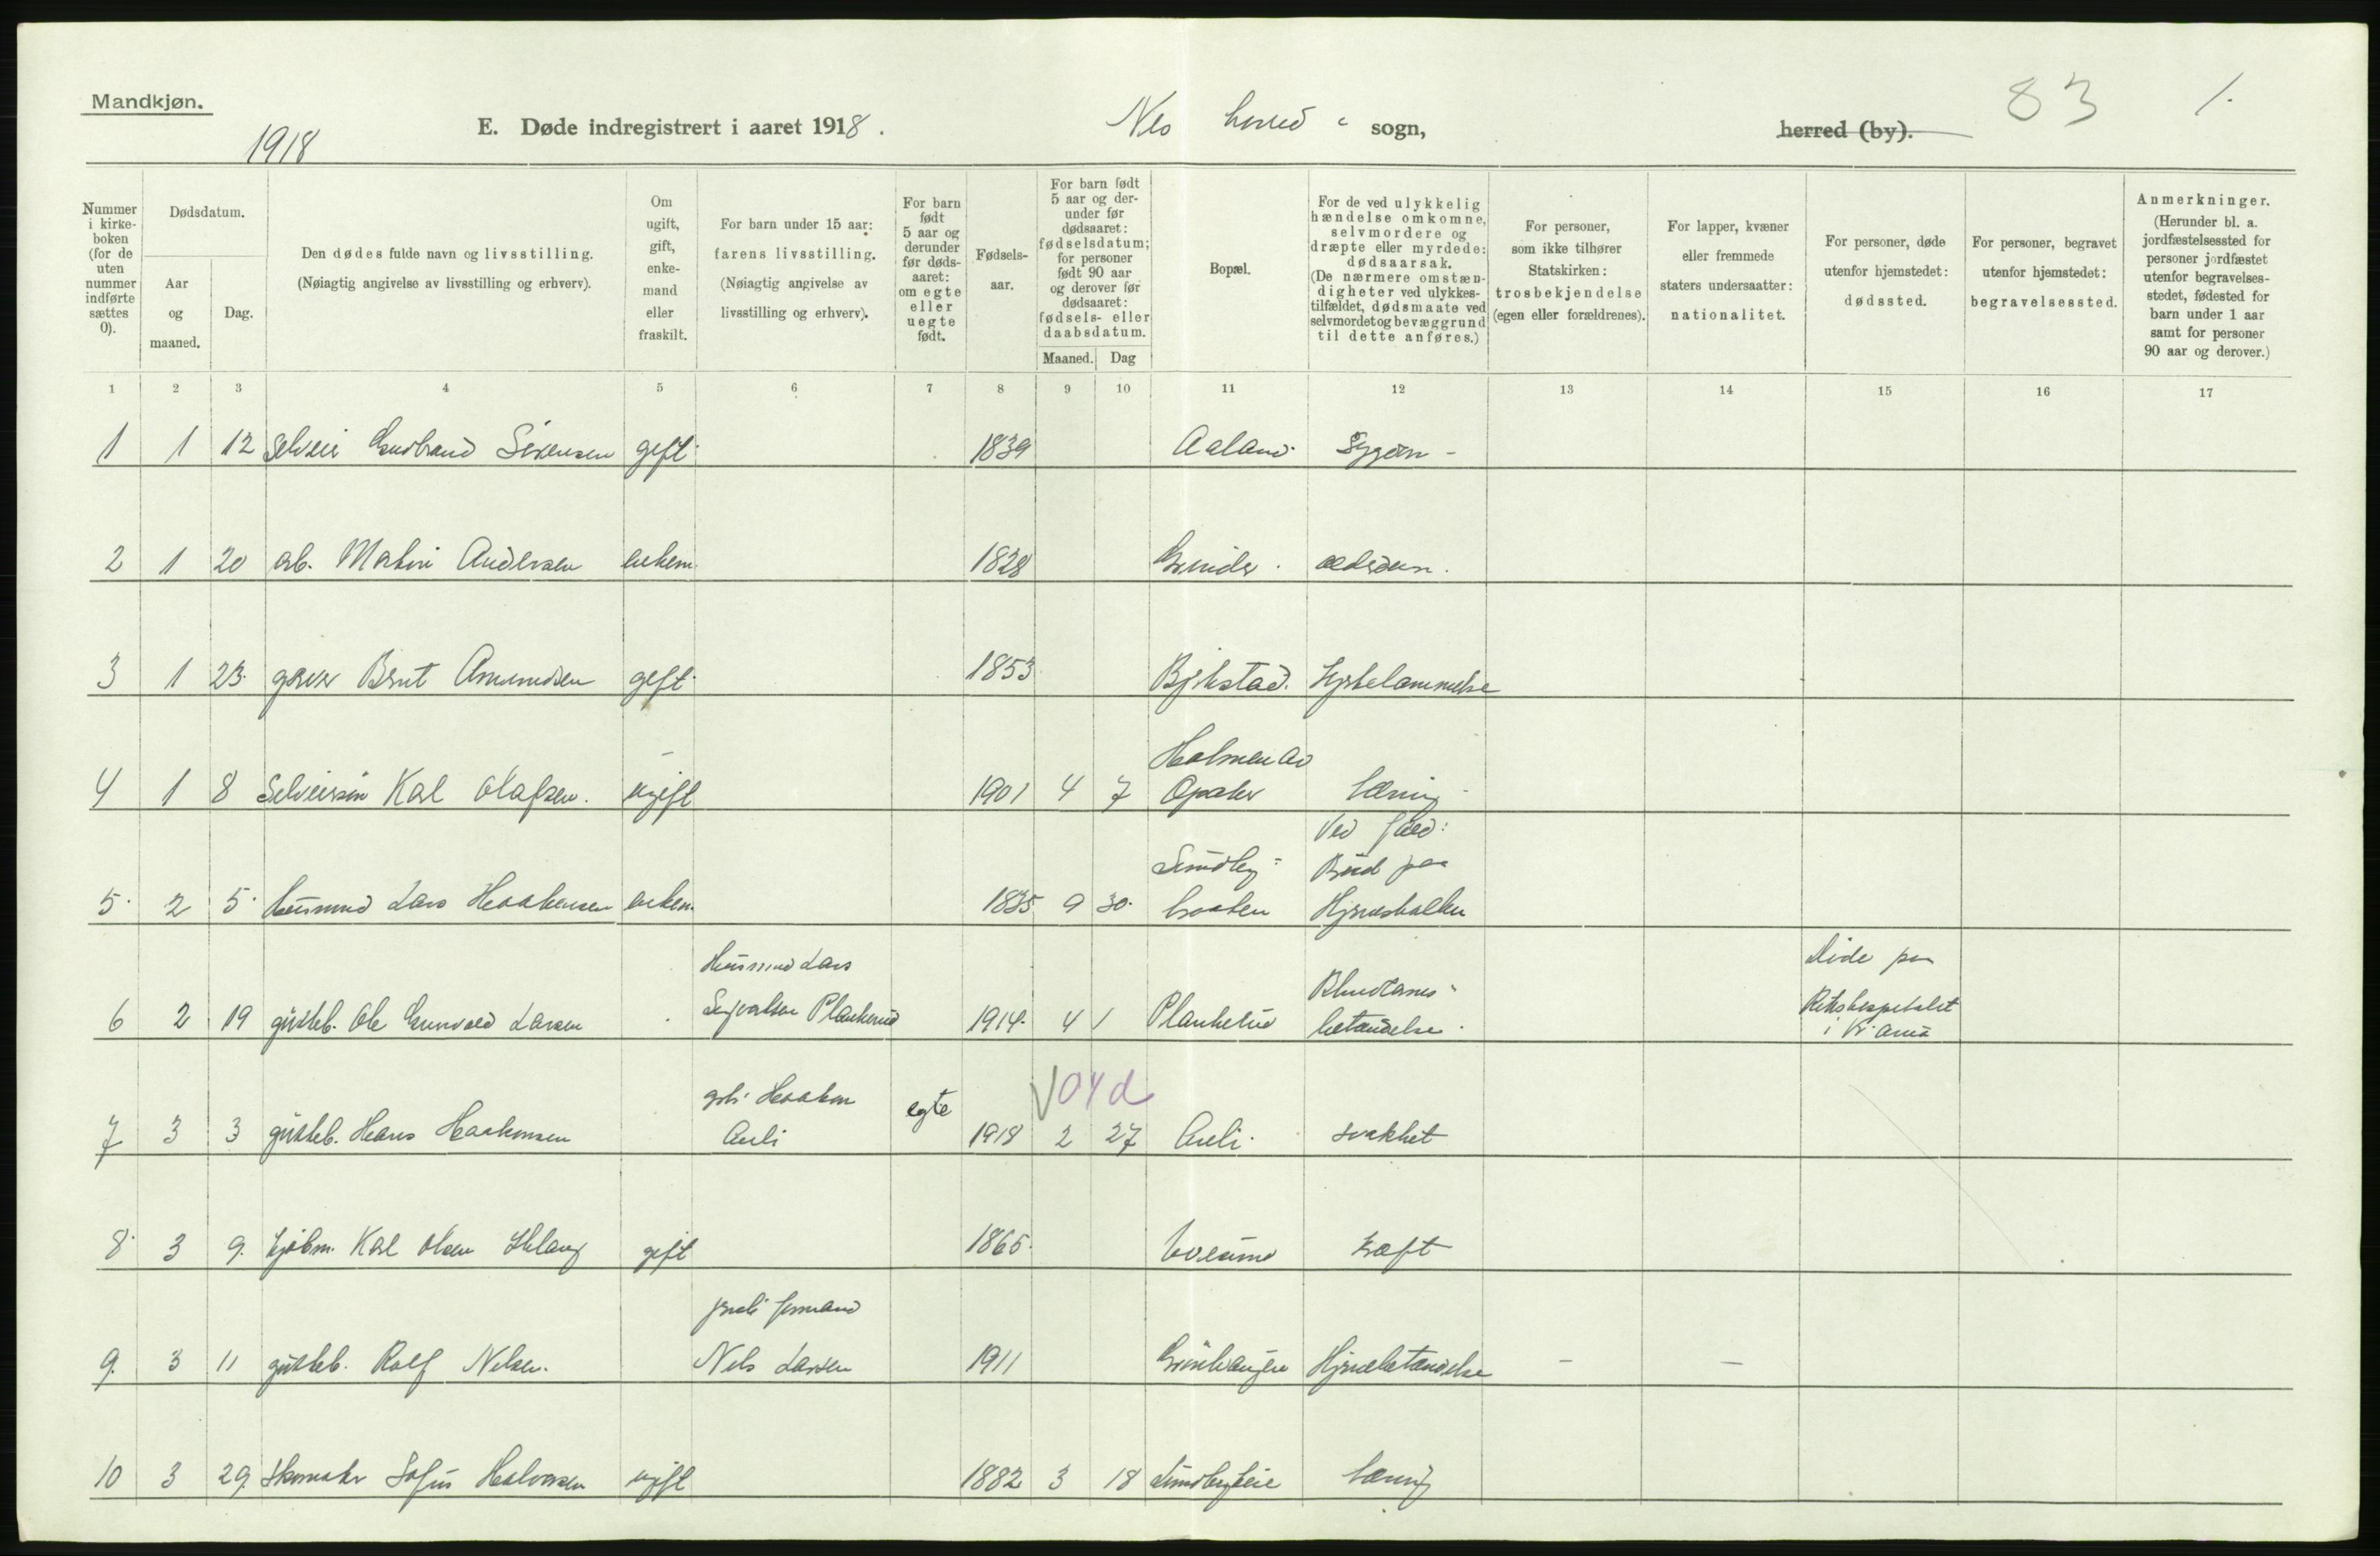 Mandkjøn.
E. Døde indregistrert i aaret 1918. Nes herred sogn, herred (by). 83 1.
1918
Nummer i kirkeboken (for de uten nummer indførte sættes 0).
Dødsdatum.
Aar og maaned.
Dag.
Den dødes fulde navn og livsstilling.
(Nøiagtig angivelse av livsstilling og erhverv).
Om ugift, gift, enkemand eller fraskilt.
For barn under 15 aar:
farens livsstilling.
(Nøiagtig angivelse av livsstilling og erhverv).
For barn født 5 aar og derunder før dødsaaret: om egte eller uegte født.
Fødselsaar.
For barn født 5 aar og derunder før dødsaaret: fødselsdatum; for personer født 90 aar og derover før dødsaaret: fødsels- eller daabsdatum.
Maaned. Dag
Bopæl.
For de ved ulykkelig hændelse omkomne, selvmordere og dræpte eller myrdede: dødsaarsak.
(De nærmere omstændigheter ved ulykkestilfældet, dødsmaate ved selvmordet og bevæggrund til dette anføres.)
For personer, som ikke tilhører Statskirken: trosbekjendelse (egen eller forældrenes).
For lapper, kvæner eller fremmede staters undersaatter: nationalitet.
For personer, døde utenfor hjemstedet: dødssted.
For personer, begravet utenfor hjemstedet: begravelsessted.
Anmerkninger.
(Herunder bl. a. jordfæstelsessted for personer jordfæstet utenfor begravelsesstedet, fødested for barn under 1 aar samt for personer 90 aar og derover.)
1 2 3 4 5 6 7 8 9 10 11 12 13 14 15 16 17
1 1 12 Selveier Gudbrand Sørensen gift 1839 Aaland
2 1 20 arb. Martin Andersen enkem. 1828 alderdom.
3 1 23. Bernt Amundsen gift 1853 Hjertelammelse
Holmen av
4 1 8 Selveiersøn Karl Olafsen. ugift 1901 4 7 Opaker tæring
Ved fald:
Sundby- Brud paa
5 2 5 Husmand Lars Haakensen enkem. 1835 9 30 braaten Hjerneskallen
Husmand Lars Døde paa
Plankerud Blindtarms-
6 2 19 gutteb. Ole Gunvald Larsen 1914 4 1 Plankerud betændelse. Rikshospitalet
i Kr.ania
V 04d
gbr. Haaken egte
7 3 3 gutteb. Hans Haakensen Auli 1918 2 27 Auli svakhet
8 3 9. Karl Olsen gift 1865 kræft
9. 3 11 gutteb. Rolf Nilsen. Nils Larsen 1911 Hjernebetændelse – –
10 3 29. Skomaker Sofus Halvorsen ugift 1882 3 18 Sundbyeie tæring